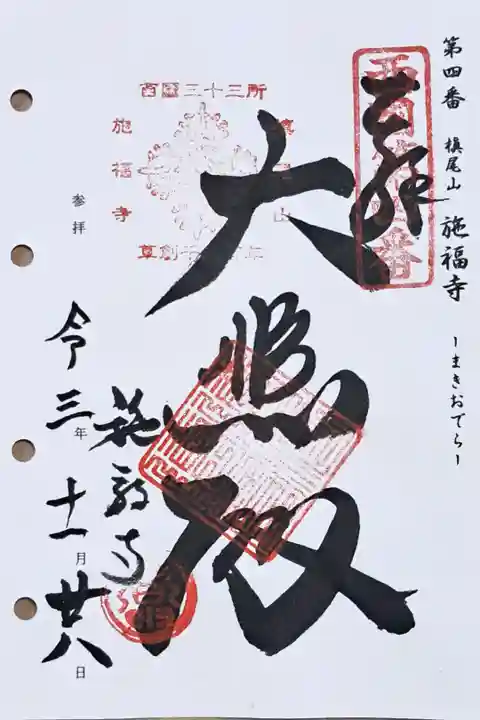 第四番 槇尾山 施福寺 ーまきおでらー
西国第四番
奉拝
西國三十三所
槇尾山
施福寺
草創千三百年
大悲殿
施福寺
参拝
令三年十一月廿八日